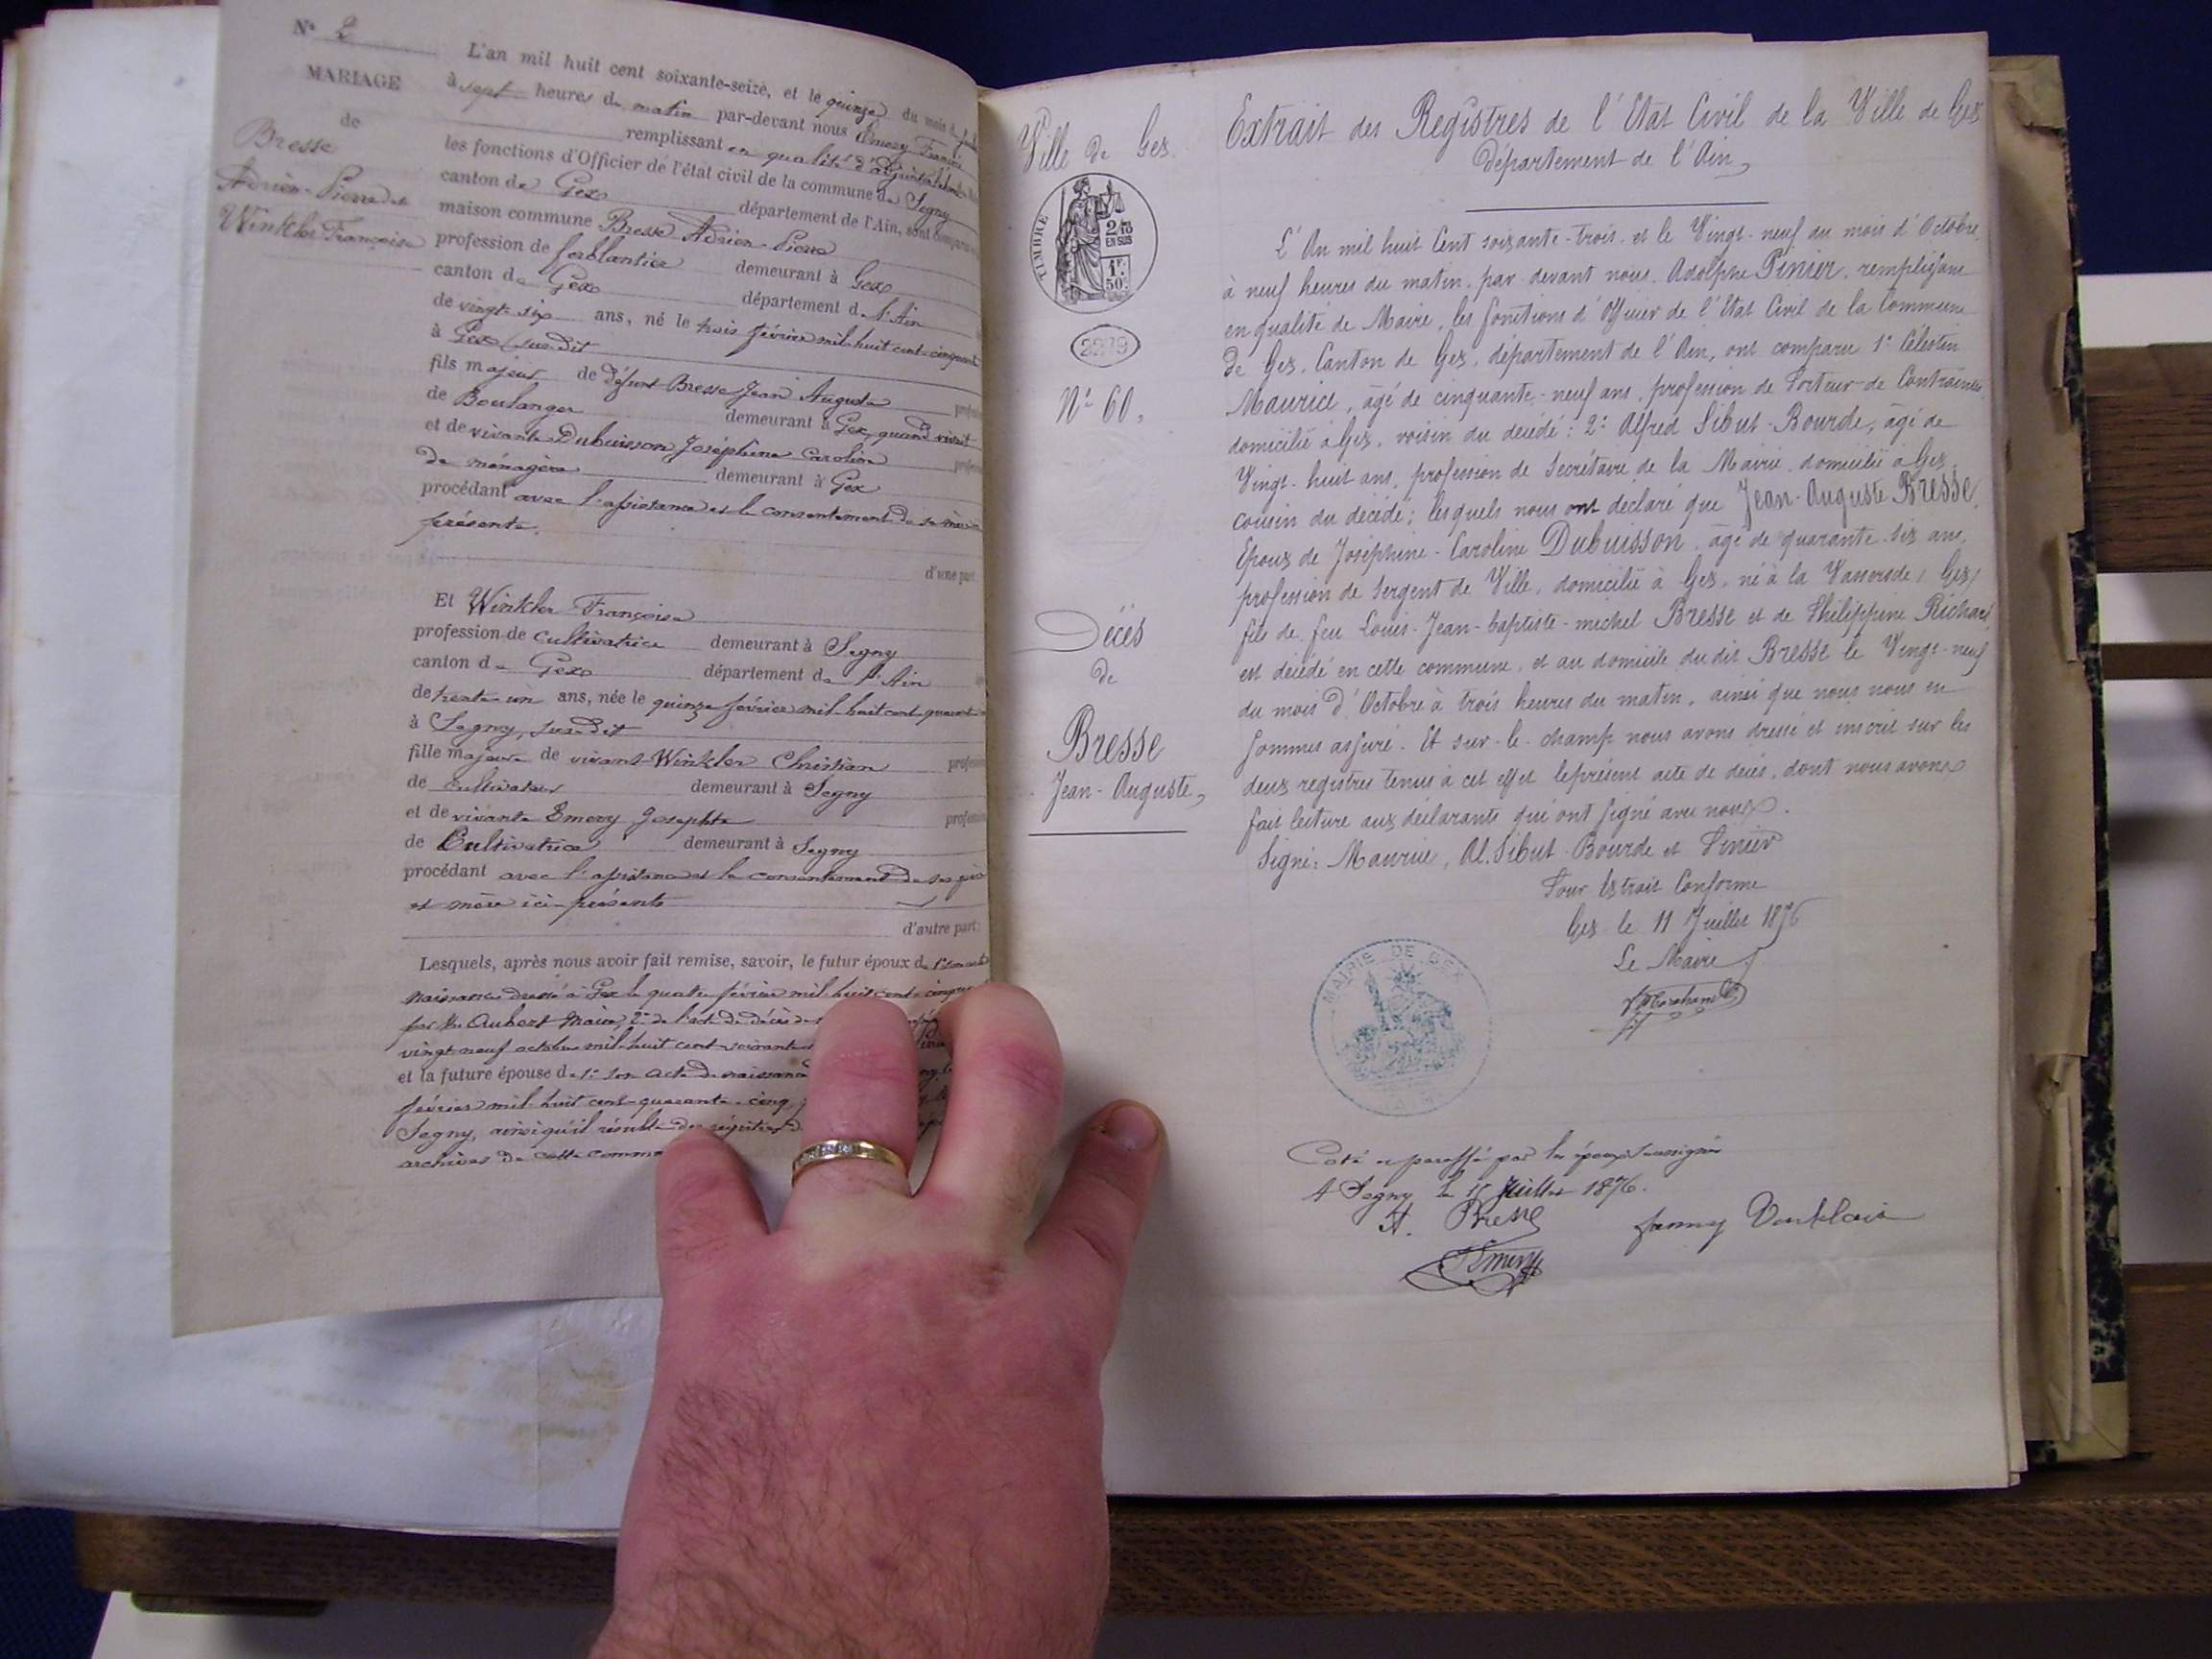 N° 2
MARIAGE
de
Bresse
Adrien-Pierre et
Winkler Françoise
L'an mil huit cent soixante-seize, et le quinze du mois de
à sept heures du matin par-devant nous Emery François
remplissant en qualité d'adjoint
les fonctions d'Officier de l'état civil de la commune de Segny
canton de Gex département de l'Ain, sont comparus
maison commune Bresse Adrien-Pierre
profession de ferblantier demeurant à Gex
canton de Gex département de l'Ain
de vingt-six ans, né le trois février mil-huit-cent-cinquante
à Gex susdit
fils majeur de défunt Bresse Jean Auguste
de Boulanger demeurant à Gex, quand vivait
et de vivante Dubuisson Joséphine Caroline
de ménagère demeurant à Gex
procédant avec l'assistance et le consentement de sa mère
présente.
d'une part.
Et Winkler Françoise
profession de cultivatrice demeurant à Segny
canton de Gex département de l'Ain
de trente-un ans, née le quinze février mil-huit-cent-quarante
à Segny, susdit
fille majeure de vivant Winkler Christian
de cultivateur demeurant à Segny
et de vivante Emery Josephte
de Cultivatrice demeurant à Segny
procédant avec l'assistance et le consentement de ses père
et mère ici-présents
d'autre part.
Lesquels, après nous avoir fait remise, savoir, le futur époux de
naissance dressé à Gex le quatre février mil-huit-cent-cinquante
par Mr Aubert Maire, 2° de l'acte de décès de
vingt-neuf octobre mil-huit-cent-soixante
et la future épouse de 1° son acte de naissance
février mil-huit-cent-quarante-cinq
Segny, ainsi qu'il résulte des registres
archives de cette commune
Ville de Gex
TIMBRE
2/10
EN SUS
1F.
50c.
2279
N° 60,
Décès
de
Bresse
Jean-Auguste,
Extrait des Registres de l'Etat Civil de la Ville de Gex
Département de l'Ain,
L'An mil huit Cent soixante-trois et le Vingt-neuf du mois d'Octobre
à neuf heures du matin, par devant nous, Adolphe Pinier, remplissant
en qualité de Maire, les fonctions d'Officier de l'Etat Civil de la Commune
de Gex, Canton de Gex, département de l'Ain, ont comparu 1° Célestin
Maurice, âgé de cinquante-neuf ans, profession de Porteur-de Contraintes,
domicilié à Gex, voisin du décédé; 2° Alfred Sibut-Bourde, âgé de
Vingt-huit ans, profession de Secrétaire de la Mairie, domicilié à Gex,
cousin du décédé; lesquels nous ont déclaré que Jean-Auguste Bresse,
Epoux de Joséphine-Caroline Dubuisson, âgé de quarante-six ans,
profession de Sergent de Ville, domicilié à Gex, né à la Vasserode (Gex)
fils de feu Louis-Jean-baptiste-michel Bresse et de Philippine Richard
est décédé en cette commune, et au domicile du dit Bresse le Vingt-neuf
du mois d'Octobre à trois heures du matin, ainsi que nous nous en
sommes assuré. Et sur-le-champ nous avons dressé et inscrit sur les
deux registres tenus à cet effet le présent acte de décès, dont nous avons
fait lecture aux déclarants qui ont signé avec nous.
Signé: Maurice, Al. Sibut-Bourde et Pinier
Pour Extrait Conforme
Gex le 11 Juillet 1876
Le Maire
MAIRIE DE GEX
Coté et paraffé par les époux soussignés
A Segny le 15 Juillet 1876.
A. Bresse
Emery